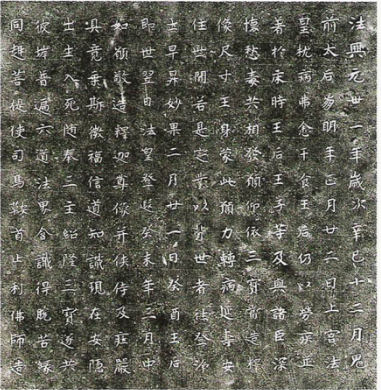 法興元卅一年歳次辛巳十二月鬼
前太后崩明年正月廿二日上宮法
皇枕病弗悆干食王后仍以勞疾並
著於床時王后王子等及與諸臣深
懐愁毒共相發願仰依三寳當造釋
像尺寸王身蒙此願力轉病延壽安
住世間若是定業以背世者往登浄
土早昇妙果二月廿一日癸酉王后
即世翌日法皇登遐癸未年三月中
如願敬造釋迦尊像并侠侍及荘嚴
具竟乗斯微福信道知識現在安隱
出生入死随奉三主紹隆三寳遂共
彼岸普遍六道法界含識得脱苦縁
同趣菩提使司馬鞍首止利佛師造